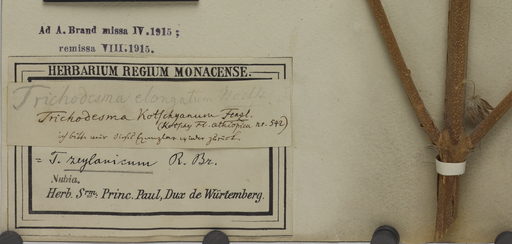 Ad A. Brand missa IV. 1915;
remissa VIII. 1915.
HERBARIUM REGIUM MONACENSE.
Trichodesma elongatum
Trichodesma Kotschyanum Fenzl.
(Kotschy Fl. aethiopica nr. 542)
ich bitte mir dieses Exemplar wieder zurück.
= T. zeylanicum R. Br.
Nubia.
Herb. Srmi Princ. Paul, Dux de Würtemberg.